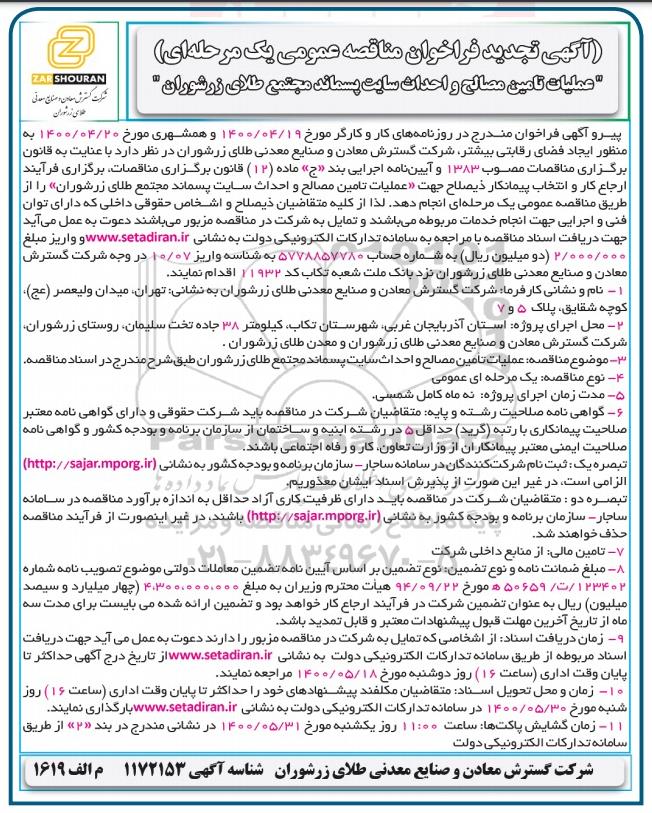 ZARSHOURAN
شرکت گسترش معادن و صنایع معدنی
طلای زرشوران
(آگهی تجدید فراخوان مناقصه عمومی یک مرحله‌ای)
"عملیات تامین مصالح و احداث سایت پسماند مجتمع طلای زرشوران"
پیـرو آگهی فراخوان منـدرج در روزنامه‌های کار و کارگر مورخ ۱۴۰۰/۰۴/۱۹ و همشـهری مورخ ۱۴۰۰/۰۴/۲۰ به
منظور ایجاد فضای رقابتی بیشتر، شرکت گسترش معادن و صنایع معدنی طلای زرشوران در نظر دارد با عنایت به قانون
برگـزاری مناقصات مصـوب ۱۳۸۳ و آیین‌نامه اجرایی بند «ج» ماده (۱۲) قانون برگـزاری مناقصات، برگزاری فرآیند
ارجاع کار و انتخاب پیمانکار ذیصلاح جهت «عملیات تامین مصالح و احداث سـایت پسماند مجتمع طلای زرشوران» را از
طریق مناقصه عمومی یک مرحله‌ای انجام دهد. لذا از کلیه متقاضیان ذیصلاح و اشـخاص حقوقی داخلی که دارای توان
فنی و اجرایی جهت انجام خدمات مربوطه می‌باشند و تمایل به شرکت در مناقصه مزبور می‌باشند دعوت به عمل می‌آید
جهت دریافت اسناد مناقصه با مراجعه به سامانه تدارکات الکترونیکی دولت به نشانی www.setadiran.ir و واریز مبلغ
۲/۰۰۰/۰۰۰ (دو میلیون ریال) به شـماره حساب ۵۷۷۸۸۵۷۷۸۰ به شناسه واریز ۱۰/۰۷ در وجه شرکت گسترش
معادن و صنایع معدنی طلای زرشوران نزد بانک ملت شعبه تکاب کد ۱۱۹۳۲ اقدام نمایند.
۱- نام و نشانی کارفرما: شرکت گسترش معادن و صنایع معدنی طلای زرشوران به نشانی: تهران، میدان ولیعصر (عج)،
کوچه شقایق، پلاک ۵ و ۷
۲- محل اجرای پروژه: اسـتان آذربایجان غربی، شهرسـتان تکاب، کیلومتر ۳۸ جاده تخت سلیمان، روستای زرشوران،
شرکت گسترش معادن و صنایع معدنی طلای زرشوران و معدن طلای زرشوران .
۳-موضوع مناقصه: عملیات تأمین مصالح و احداث سایت پسماند مجتمع طلای زرشوران طبق شرح مندرج در اسناد مناقصه.
۴- نوع مناقصه: یک مرحله ای عمومی
۵- مدت زمان اجرای پروژه: نه ماه کامل شمسی.
۶- گواهی نامه صلاحیت رشـته و پایه: متقاضیان شرکت در مناقصه باید شرکت حقوقی و دارای گواهی نامه معتبر
صلاحیت پیمانکاری با رتبه (گرید) حداقل ۵ در رشـته ابنیه و ساختمان از سازمان برنامه و بودجه کشور و گواهی نامه
صلاحیت ایمنی معتبر پیمانکاران از وزارت تعاون، کار و رفاه اجتماعی باشند.
تبصره یک : ثبت نام شرکت‌کنندگان در سامانه ساجار- سازمان برنامه و بودجه کشور به نشانی (http://sajar.mporg.ir)
الزامی است، در غیر این صورت از پذیرش اسناد ایشان معذوریم.
تبصـره دو : متقاضیان شـرکت در مناقصه بایـد دارای ظرفیت کاری آزاد حداقل به اندازه برآورد مناقصه در سـامانه
ساجار- سازمان برنامه و بودجه کشور به نشانی (http://sajar.mporg.ir) باشند، در غیر اینصورت از فرآیند مناقصه
حذف خواهند شد.
۷- تامین مالی: از منابع داخلی شرکت
۸- مبلغ ضمانت نامه و نوع تضمین: نوع تضمین بر اساس آیین نامه تضمین معاملات دولتی موضوع تصویب نامه شماره
۱۲۳۴۰۲/ت/ ۵۰۶۵۹ ه مورخ ۹۴/۰۹/۲۲ هیأت محترم وزیران به مبلغ ۴،۳۰۰،۰۰۰،۰۰۰ (چهار میلیارد و سیصد
میلیون) ریال به عنوان تضمین شرکت در فرآیند ارجاع کار خواهد بود و تضمین ارائه شده می بایست برای مدت سه
ماه از تاریخ آخرین مهلت قبول پیشنهادات معتبر و قابل تمدید باشد.
۹- زمان دریافت اسناد: از اشخاصی که تمایل به شرکت در مناقصه مزبور را دارند دعوت به عمل می آید جهت دریافت
اسناد مربوطه از طریق سامانه تدارکات الکترونیکی دولت به نشانی www.setadiran.ir از تاریخ درج آگهی حداکثر تا
پایان وقت اداری (ساعت ۱۶) روز دوشنبه مورخ ۱۴۰۰/۰۵/۱۸ مراجعه نمایند.
۱۰- زمان و محل تحویل اسـناد: متقاضیان مکلفند پیشـنهادهای خود را حداکثر تا پایان وقت اداری (ساعت ۱۶) روز
شنبه مورخ ۱۴۰۰/۰۵/۳۰ در سامانه تدارکات الکترونیکی دولت به نشانی www.setadiran.ir بارگذاری نمایند.
۱۱- زمان گشایش پاکت‌ها: ساعت ۱۱:۰۰ روز یکشنبه مورخ ۱۴۰۰/۰۵/۳۱ در نشانی مندرج در بند «۲» از طریق
سامانه تدارکات الکترونیکی دولت
شرکت گسترش معادن و صنایع معدنی طلای زرشوران شناسه آگهی ۱۱۷۲۱۵۳ م الف ۱۶۱۹